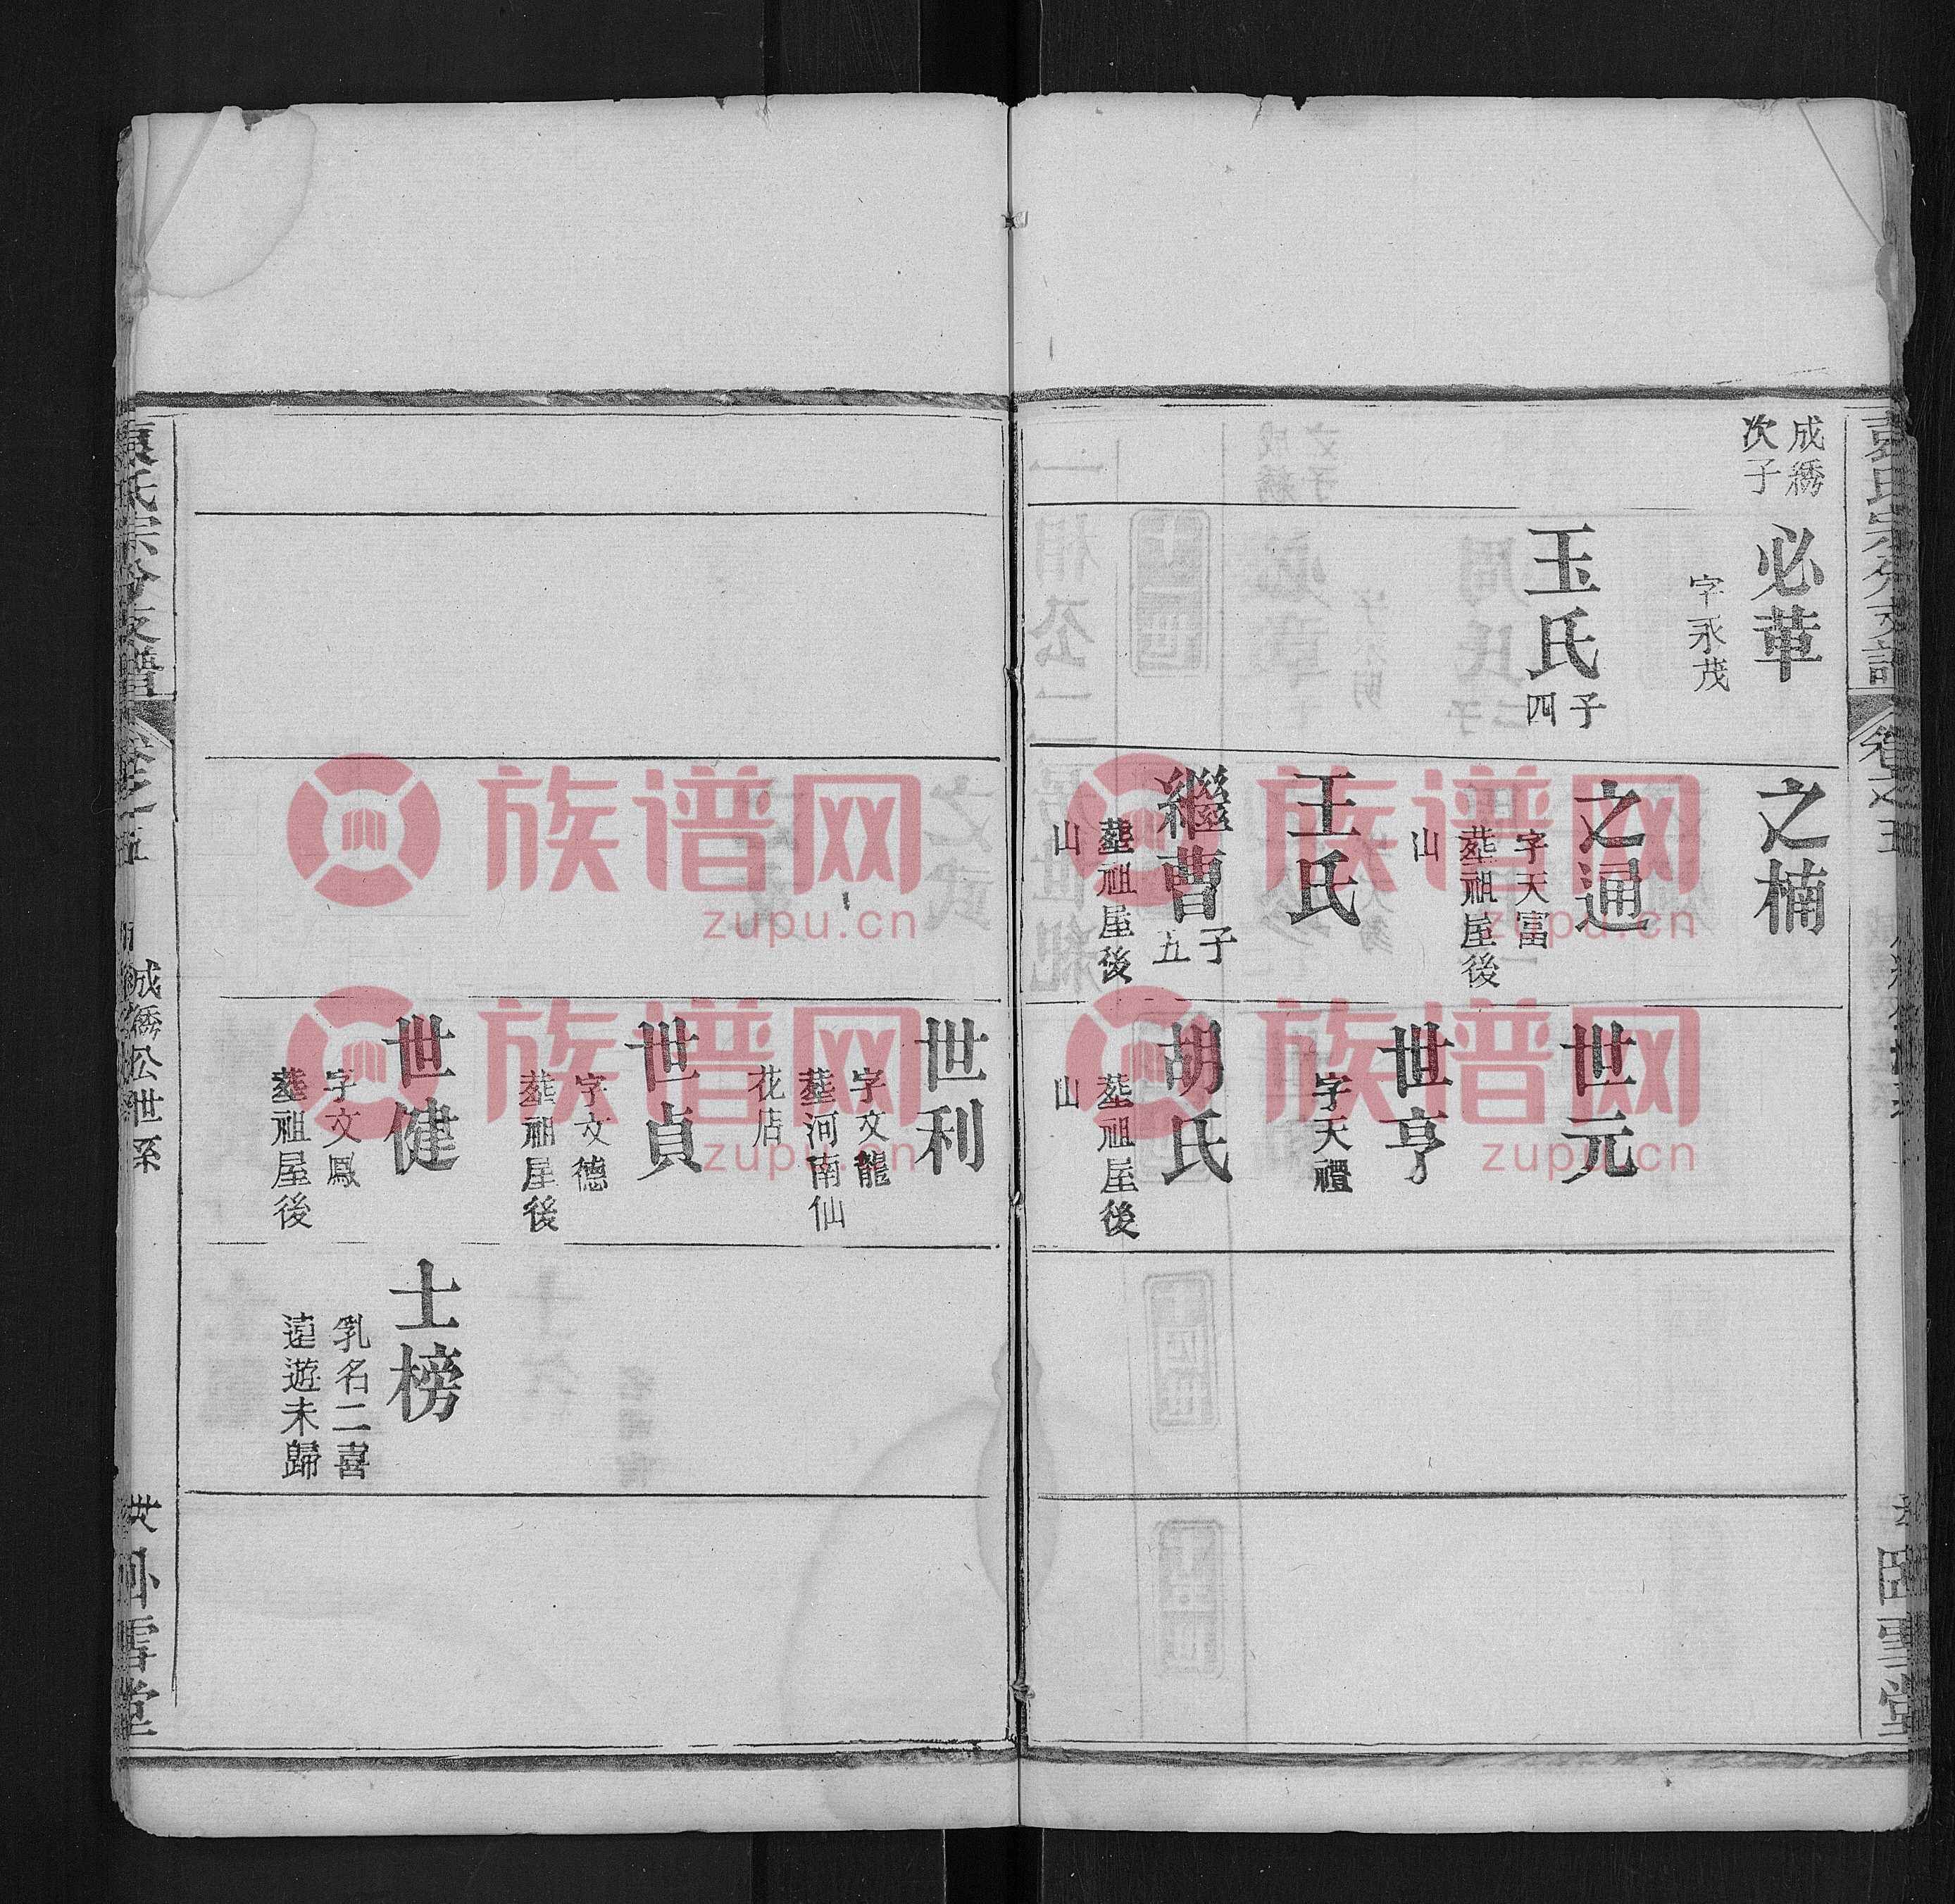 成
次子
必華
字永茂
玉氏
四子
之楠
之通
字天富
葬祖屋後
山
王氏
繼曹
五子
葬祖屋後
山
世元
世亨
字天禮
胡氏
葬祖屋後
山
世利
字文龍
葬河南仙
花店
世貞
字文德
葬祖屋後
世健
字文鳳
葬祖屋後
士榜
乳名二喜
遠遊未歸
袁氏宗分支譜
卷之五
公世系
臥雪堂
族谱网
zupu.cn
族谱网
zupu.cn
族谱网
zupu.cn
族谱网
zupu.cn